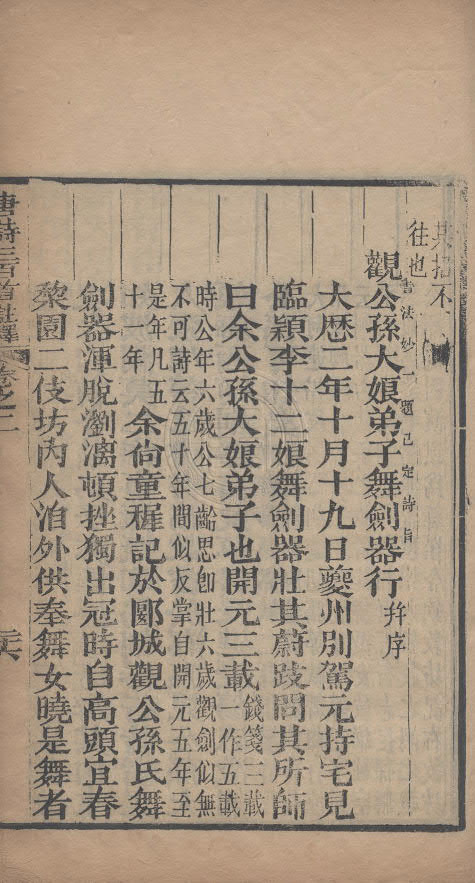 其拙不
往也
書法妙一題已定詩旨
觀公孫大娘弟子舞劍器行 幷序
大歷二年十月十九日夔州別駕元持宅見
臨潁李十二娘舞劍器壯其蔚跂問其所師
曰余公孫大娘弟子也開元三載
錢箋三載
一作五載
時公年六歲公七齡思卽壯六歲觀劍似無
不可詩云五十年間似反掌自開元五年至
是年凡五
十一年
余尙童穉記於郾城觀公孫氏舞
劍器渾脫瀏灕頓挫獨出冠時自高頭宜春
棃園二伎坊內人洎外供奉舞女曉是舞者
唐詩三百首註釋 卷之二